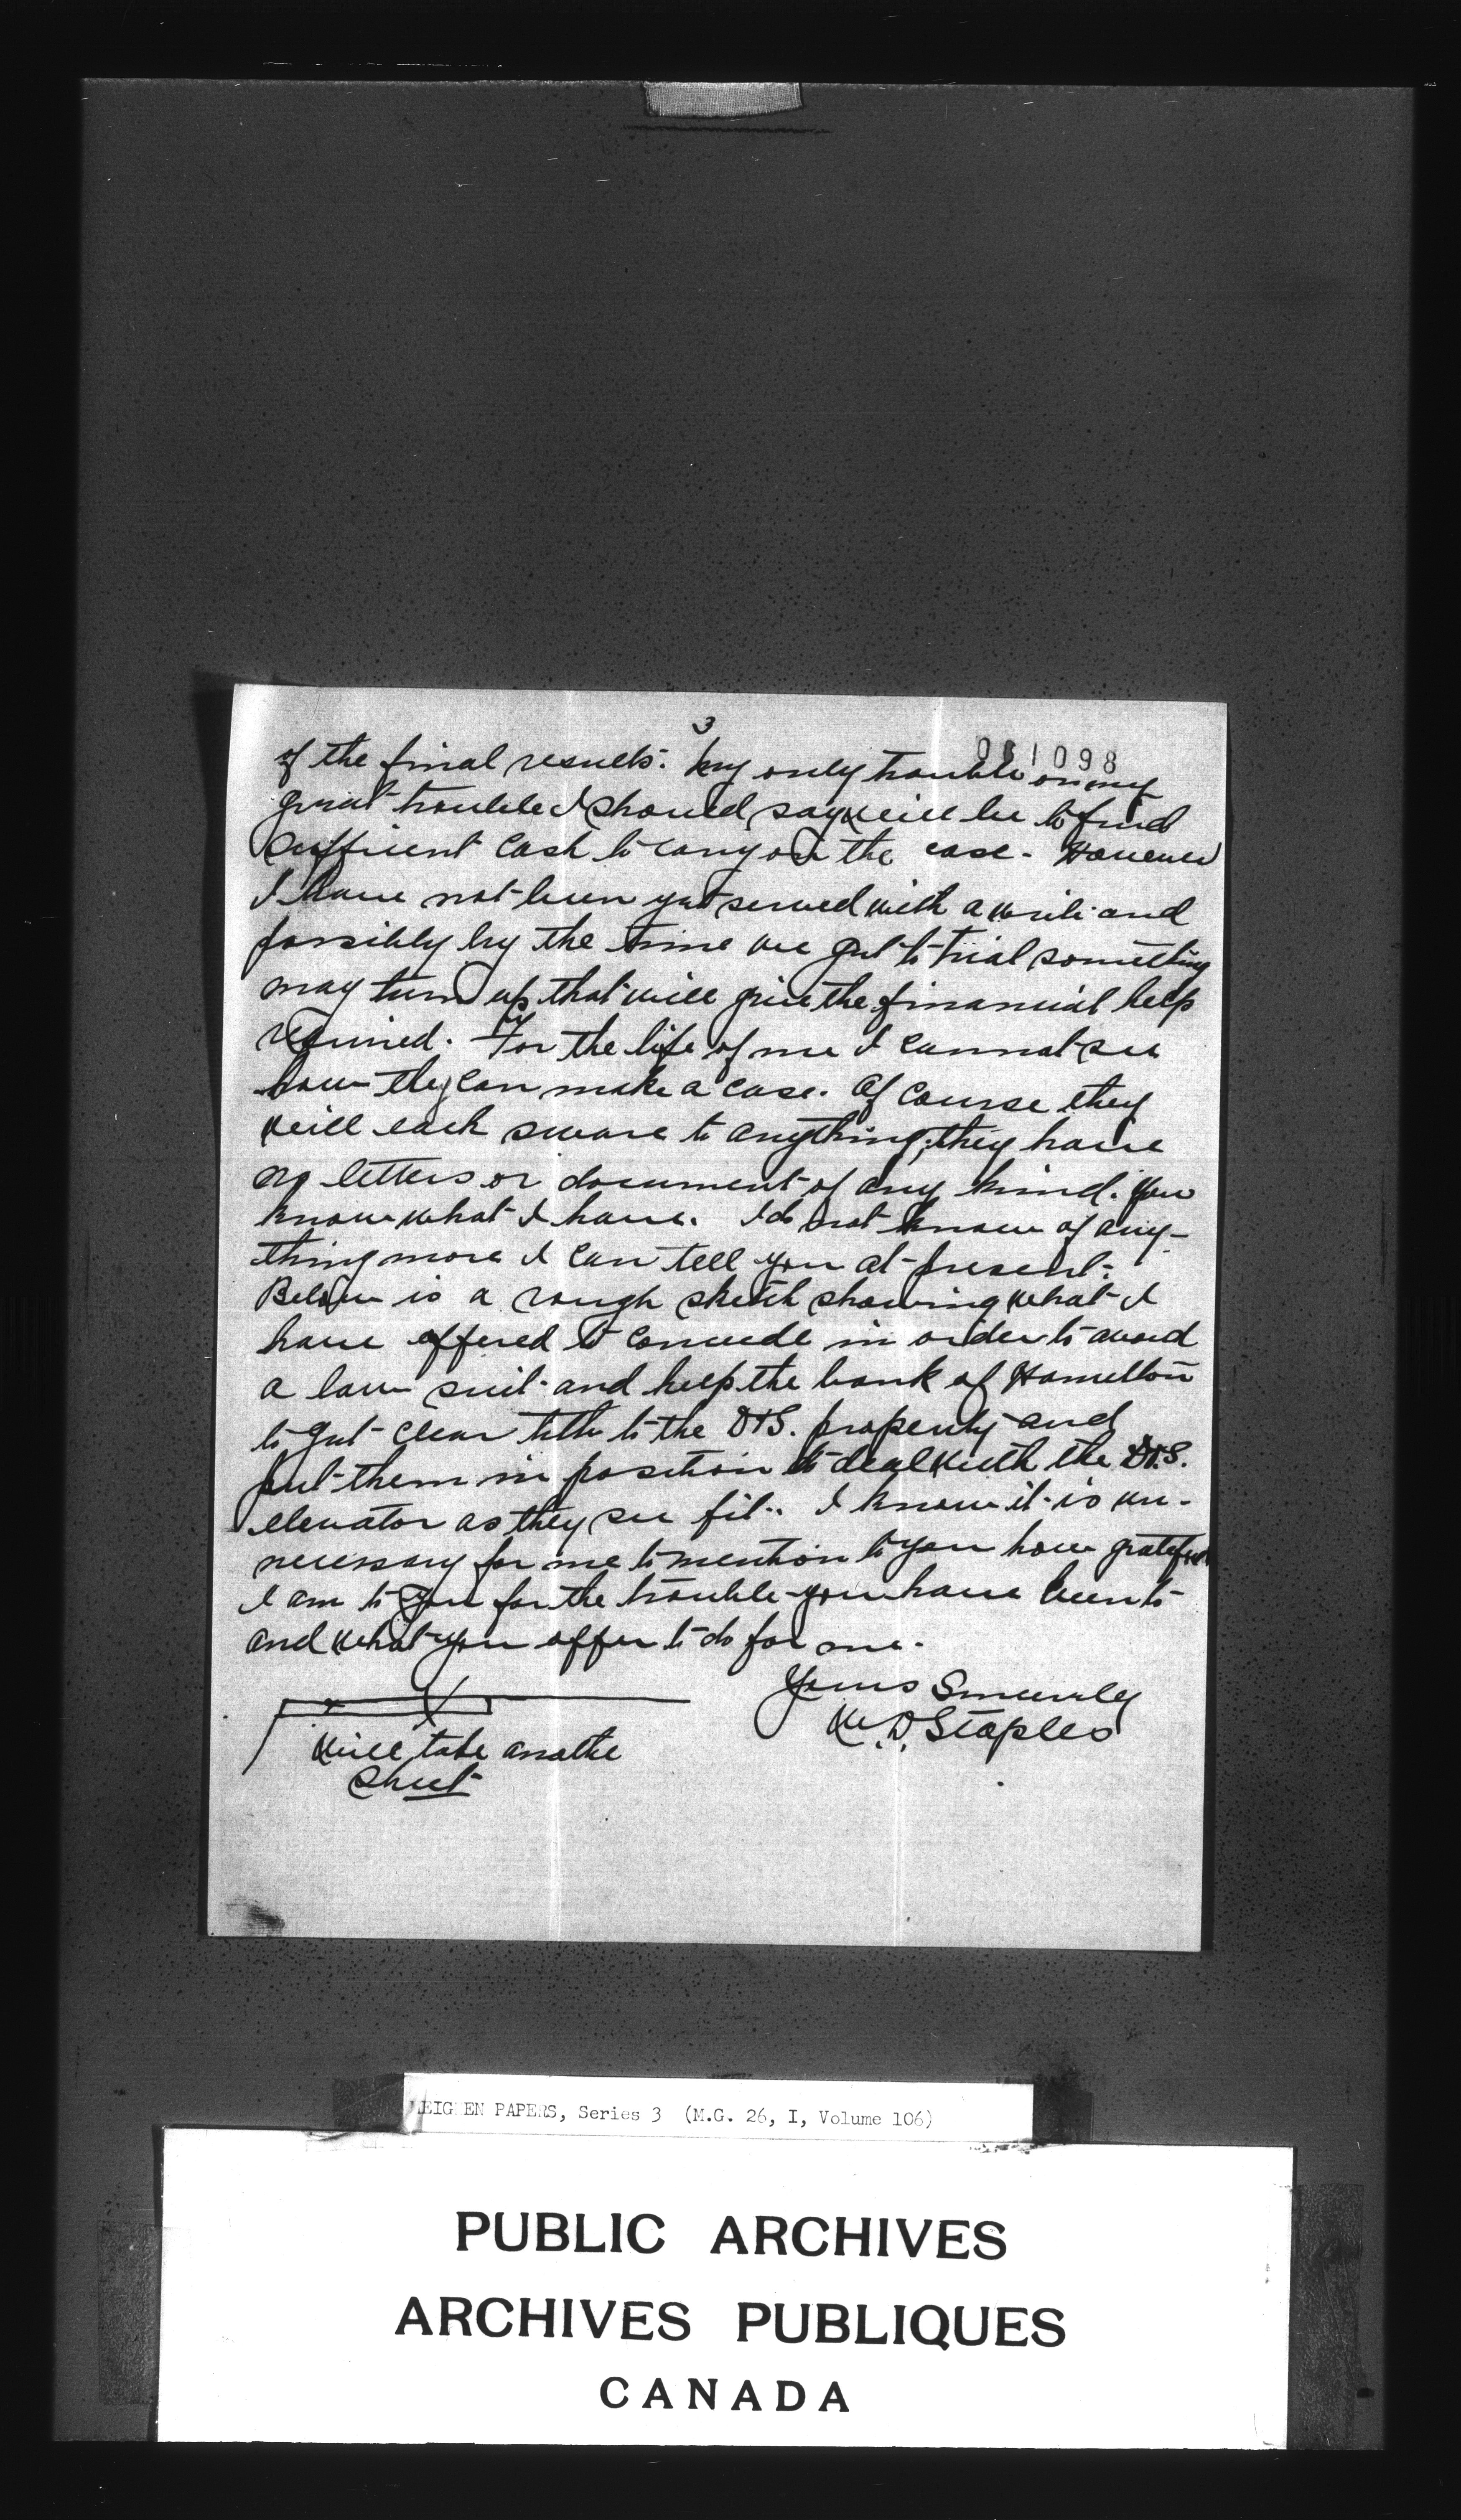 3
081098
of the final results. My only trouble or my
great trouble I should say will be to find
sufficient cash to carry on the case. However
I have not been yet served with a writ and
possibly by the time we get to trial something
may turn up that will give the financial help
required. For the life of me I cannot see
how they can make a case. Of course they
will each sware to anything, they have
no letters or document of any kind. You
know what I have. I do not know of any-
thing more I can tell you at present.
Below is a rough sketch showing what I
have offered to concede in order to avoid
a law suit and help the bank of Hamilton
to get clear title to the D&S. property and
put them in position to deal with the D&S.
elevator as they see fit. I know it is un-
necessary for me to mention to you how grateful
I am to you for the trouble you have been to
and what you offer to do for me.
Yours Sincerely
W. D. Staples
Will take anothe
sheet
MEIGHEN PAPERS, Series 3 (M.G. 26, I, Volume 106)
PUBLIC ARCHIVES
ARCHIVES PUBLIQUES
CANADA